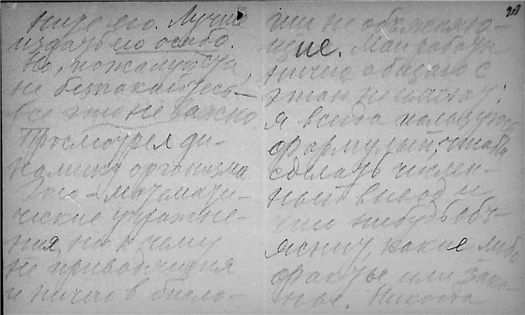 ниге его. Лучше
издать его особо.
Но, пожалуйста,
не беспокойтесь –
все это не важно
Просмотрел ди-
намику организма
Это – математи-
ческие упражне-
ния, ни к чему
не приводящия
и ничего в биоло-
20
гии не объясняю-
щие. Мои работы
ничего общаго с
этим не имеют:
я всегда пользуюсь
формулой, чтобы
сделать числен-
ный вывод и
что нибудь объ-
яснить, какие либо
факты или зако-
ны. Никогда